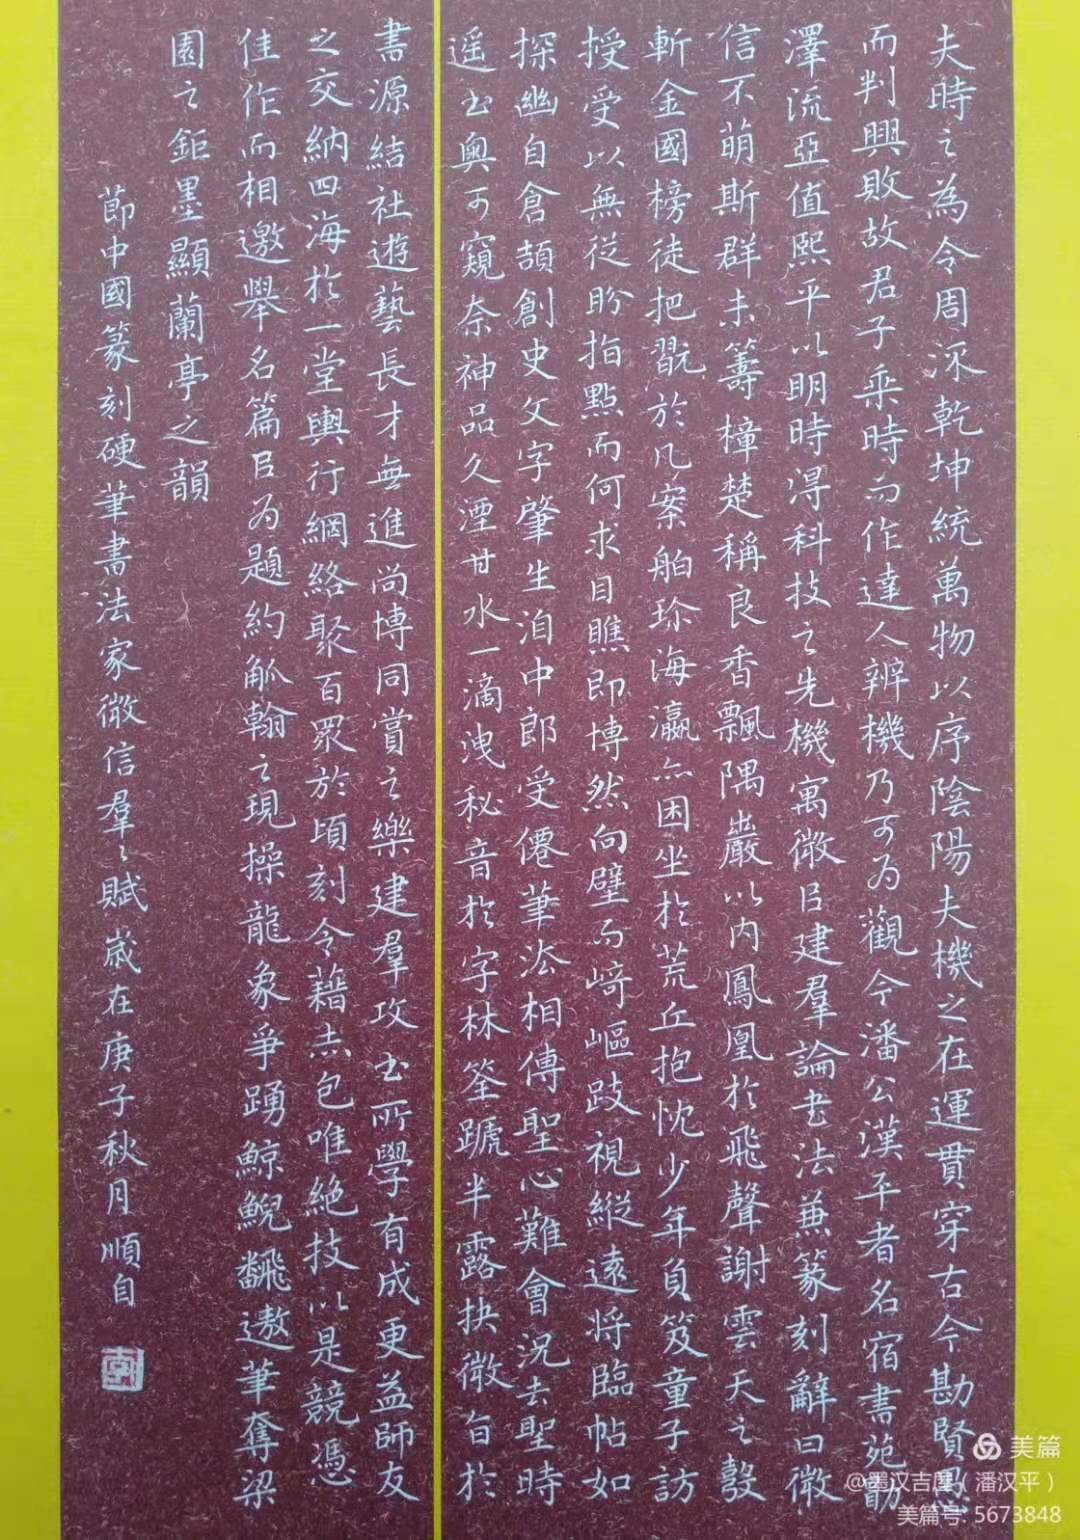 夫時之為令周深乾坤統萬物以序陰陽夫機之在運貫穿古今勘賢愚
而判興敗故君子乘時而作達人辨機乃可为觀今潘公漢平者名宿書苑勛
澤流亞值熙平以明時淂科技之先機寓微㠯建羣論书法兼篆刻辭曰微
信不萌斯群未籌橦楚稱良香飄隅巖以内鳳凰於飛聲謝雲天之
斬金國榜徒把翫於几案舶珍海瀛亦困坐於荒丘抱忱少年負笈童子訪
授受以無從盼指點而何求目瞧即博然向壁而崎嶇跂視縱遠将臨帖如
探幽自倉頡創史文字肇生洎中郎受僊筆法相傳聖心難會況去聖時
遥书奥可窺奈神品久湮甘水一滴洩秘音於字林筌蹏半露抉微旨於
書源結社遊藝長才無進尚博同賞之樂建羣攻书所學有成更益師友
之交納四海於一堂輿行網絡聚百眾於頃刻令藉志包唯絶技以是競憑
佳作而相邀舉名篇㠯为題約觚翰之現操龍象爭踴鯨鯢飜遨筆奪梁
園之鉅墨顯蘭亭之韻
節中國篆刻硬筆書法家微信羣々賦嵗在庚子秋月順自
美篇
@墨汉吉厘（潘汉平）
美篇号: 5673848